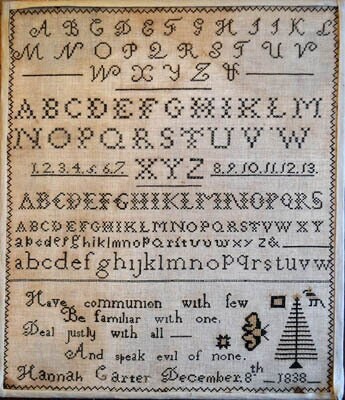 A B C D E F G H I I K L
M N O P Q R S T U V
W X Y Z &
A B C D E F G H I K L M
N O P Q R S T U V W
1.2.3.4.5.6.7. X Y Z 8.9.10.11.12.13.
A B C D E F G H I K L M N O P Q R S
A B C D E F G H I K L M N O P Q R S T V W X Y
a b c d e f g h i k l m n o p q r ſ t u v w x y z &
a b c d e f g h i j k l m n o p q r s t u v w
Have communion with few
Be familiar with one.
Deal justly with all —
And speak evil of none.
Hannah Carter December, 8th 1838